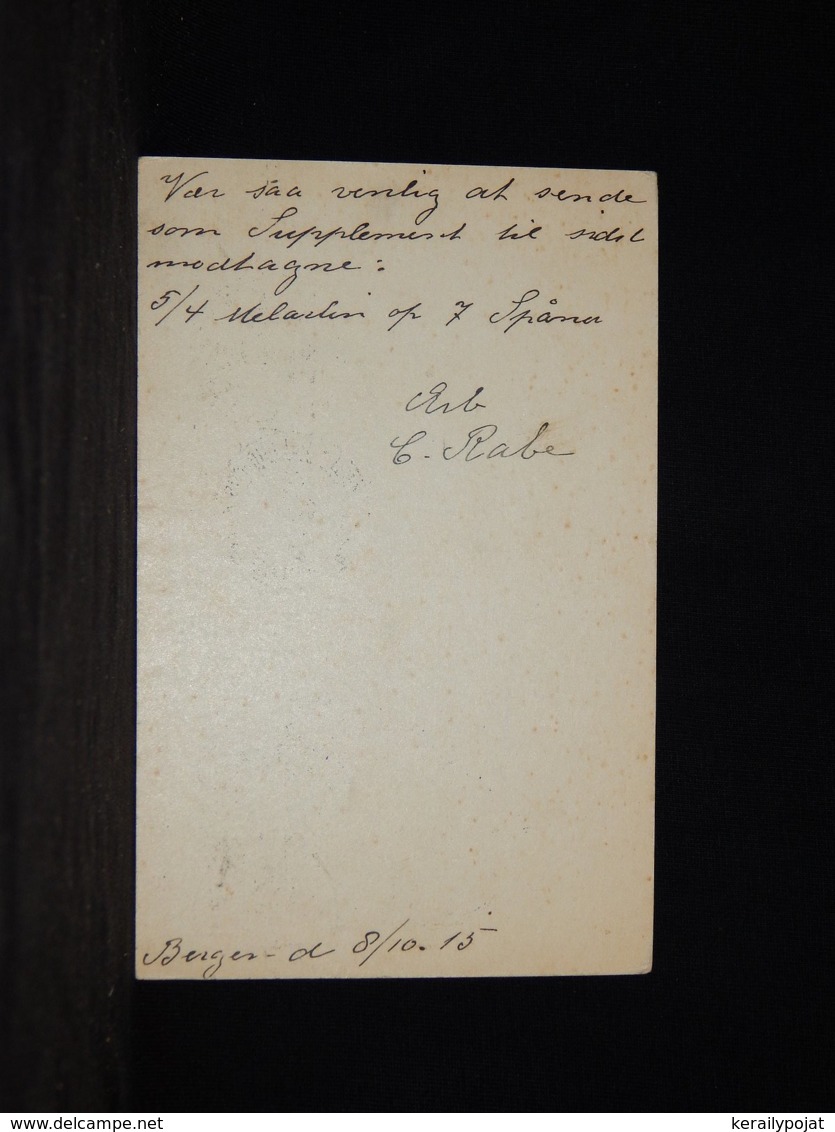 Vær saa venlig at sende
som Supplement til sidst
modtagne:
5/4 på 7
C. Rabe
Bergen d 8/10. 15
delcampe.net
kerailypojat